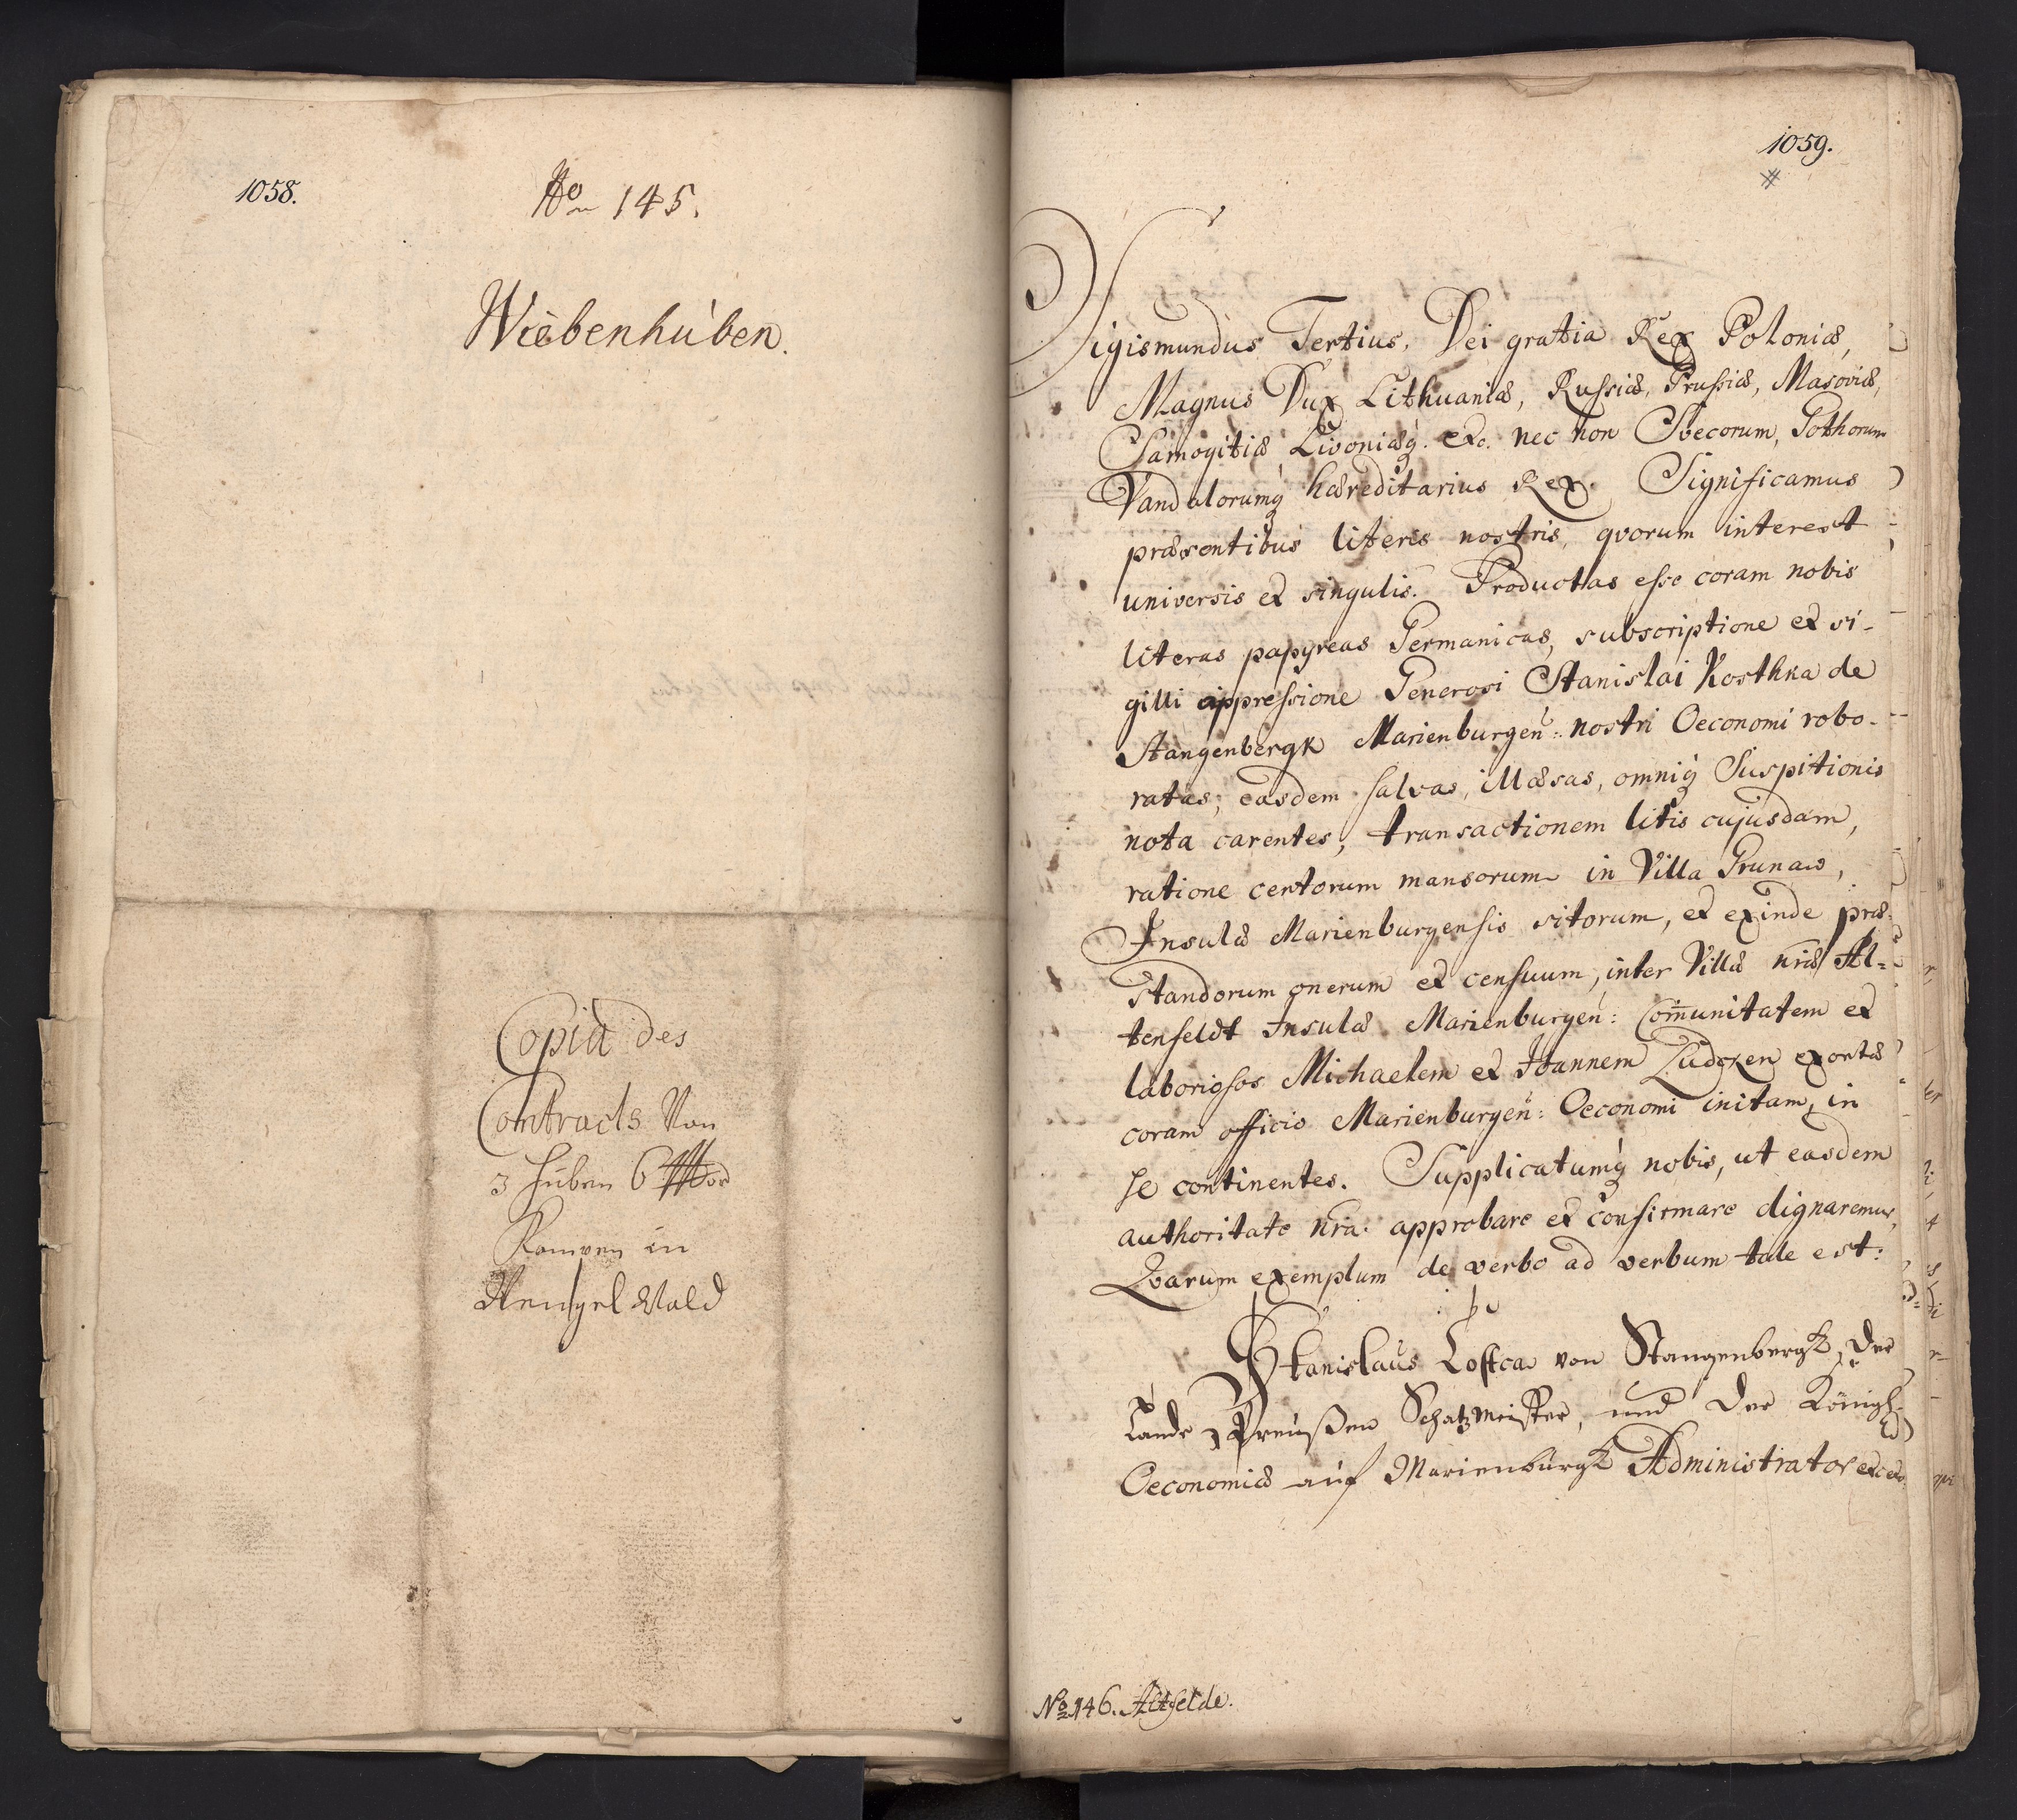 1058.
No 145.
Wiebenhuben.
Copia des
Contracts Von
3 huben 6
Kampen in
Wald
1059.
Sigismundus Tertius, Dei gratia Rex Poloniæ,
Magnus Dux Lithuaniæ, Russiæ, Prussiæ, Masoviæ,
Samogitiæ Livoniæq. etc. nec non Svecorum, Gotthorum
Vandalorumq hæreditarius Rex. Significamus
præsentibus literis nostris, qvorum interest
universis et singulis. Productas esse coram nobis
literas papyreas Germanicas, subscriptione et si-
gilli appressione Generosi Stanislai Kosthka de
Stangenbergk Marienburgen: nostri Oeconomi robo-
ratas, easdem salvas, illæsas, omniq Suspitionis
nota carentes, transactionem litis cujusdam,
ratione certorum mansorum in Villa Grunaw,
Insulæ Marienburgensis sitorum, et exinde præ-
standorum onerum et censuum, inter Villæ nræ Al-
tenfeldt Insulæ Marienburgen: Comunitatem et
laboriosos Michaelem et Ioannem Lüdcken exortæ
coram officio Marienburgen: Oeconomi initam, in
se continentes. Supplicatumq nobis, ut easdem
authoritate nra approbare et confirmare dignaremur,
Qvarum exemplum de verbo ad verbum tale est:
Stanislaus Costca von Stangenbergk, der
Lande Preußen Schatzmeister, und der Königl.
Oeconomiæ auf Marienburgk Administrator etc etc
No 146. Altfelde.